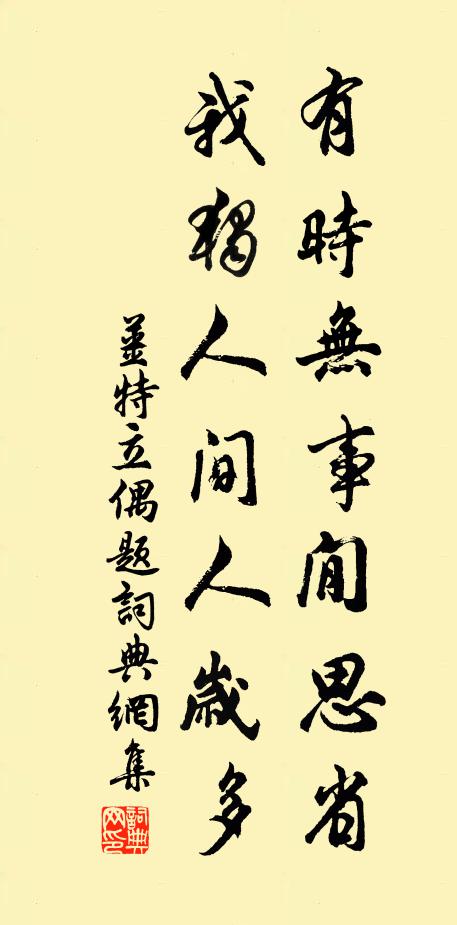 有時無事閒思省
我獨人間人歲多
姜特立偶題詞典網集
詞典網印